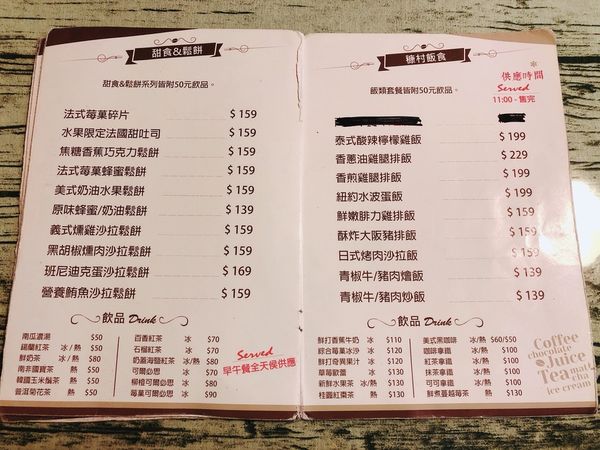 甜食&鬆餅
甜食&鬆餅系列皆附50元飲品。
法式莓菓碎片 $ 159
水果限定法國甜吐司 $ 159
焦糖香蕉巧克力鬆餅 $ 159
法式莓菓蜂蜜鬆餅 $ 159
美式奶油水果鬆餅 $ 159
原味蜂蜜/奶油鬆餅 $ 139
義式燻雞沙拉鬆餅 $ 159
黑胡椒燻肉沙拉鬆餅 $ 159
班尼迪克蛋沙拉鬆餅 $ 169
營養鮪魚沙拉鬆餅 $ 159
飲品 Drink
南瓜濃湯 $50
錫蘭紅茶 冰/熱 $50
鮮奶茶 冰/熱 $80
南非國寶茶 熱 $50
韓國玉米鬚茶 熱 $50
普洱菊花茶 熱 $50
百香紅茶 冰 $70
石榴紅茶 冰 $70
奶蓋海鹽紅茶 冰/熱 $80
可爾必思 冰 $70
柳橙可爾必思 冰 $80
莓菓可爾必思 冰 $90
Served
早午餐全天侯供應
穗村飯食
供應時間
Served
11:00 - 售完
飯類套餐皆附50元飲品。
泰式酸辣檸檬雞飯 $ 199
香蔥油雞腿排飯 $ 229
香煎雞腿排飯 $ 199
紐約水波蛋飯 $ 199
鮮嫩腓力雞排飯 $ 159
酥炸大阪豬排飯 $ 159
日式烤肉沙拉飯 $ 159
青椒牛/豬肉燴飯 $ 139
青椒牛/豬肉炒飯 $ 139
飲品 Drink
鮮打香蕉牛奶 冰 $110
綜合莓菓冰沙 冰 $120
鮮打奇異果汁 冰 $120
草莓歐蕾 冰 $130
新鮮水果茶 冰/熱 $130
桂圓紅棗茶 熱 $130
美式黑咖啡 冰/熱 $60/$50
咖啡拿鐵 冰/熱 $100
紅茶拿鐵 冰/熱 $100
抹茶拿鐵 冰/熱 $100
可可拿鐵 冰/熱 $100
鮮煮蔓越莓茶 熱 $130
Coffee
chocolate
Juice
Tea matcha
ice cream